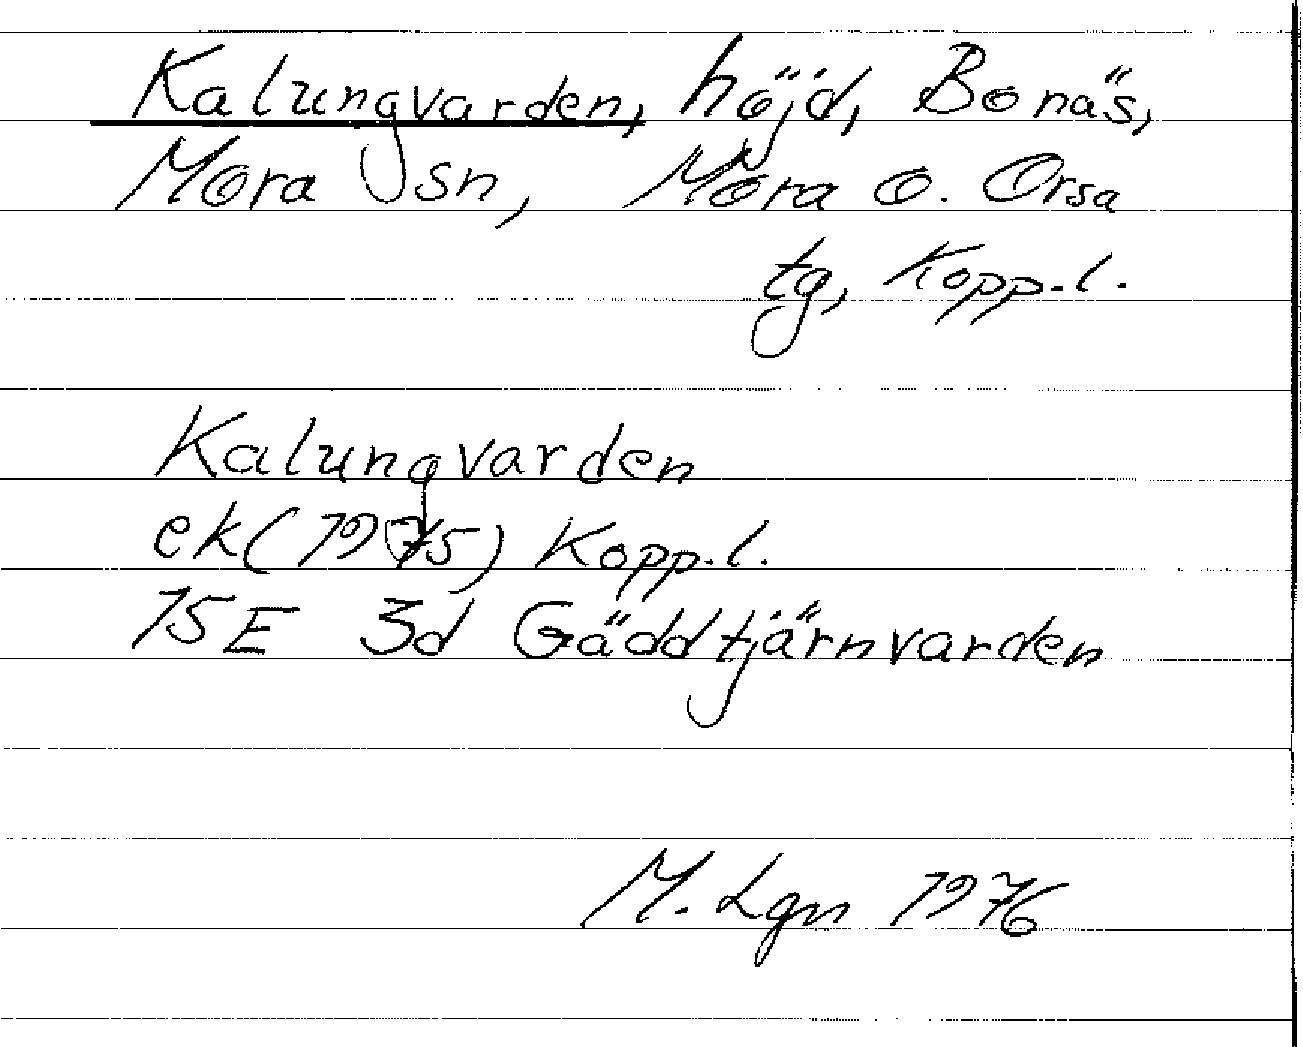 Kalungvarden, höjd, Bonäs,
Mora sn, Mora o. Orsa
tg, Kopp.l.
Kalungvarden
ek (1975) Kopp.l.
15E 3d Gäddtjärnvarden
M. Lgn 1976